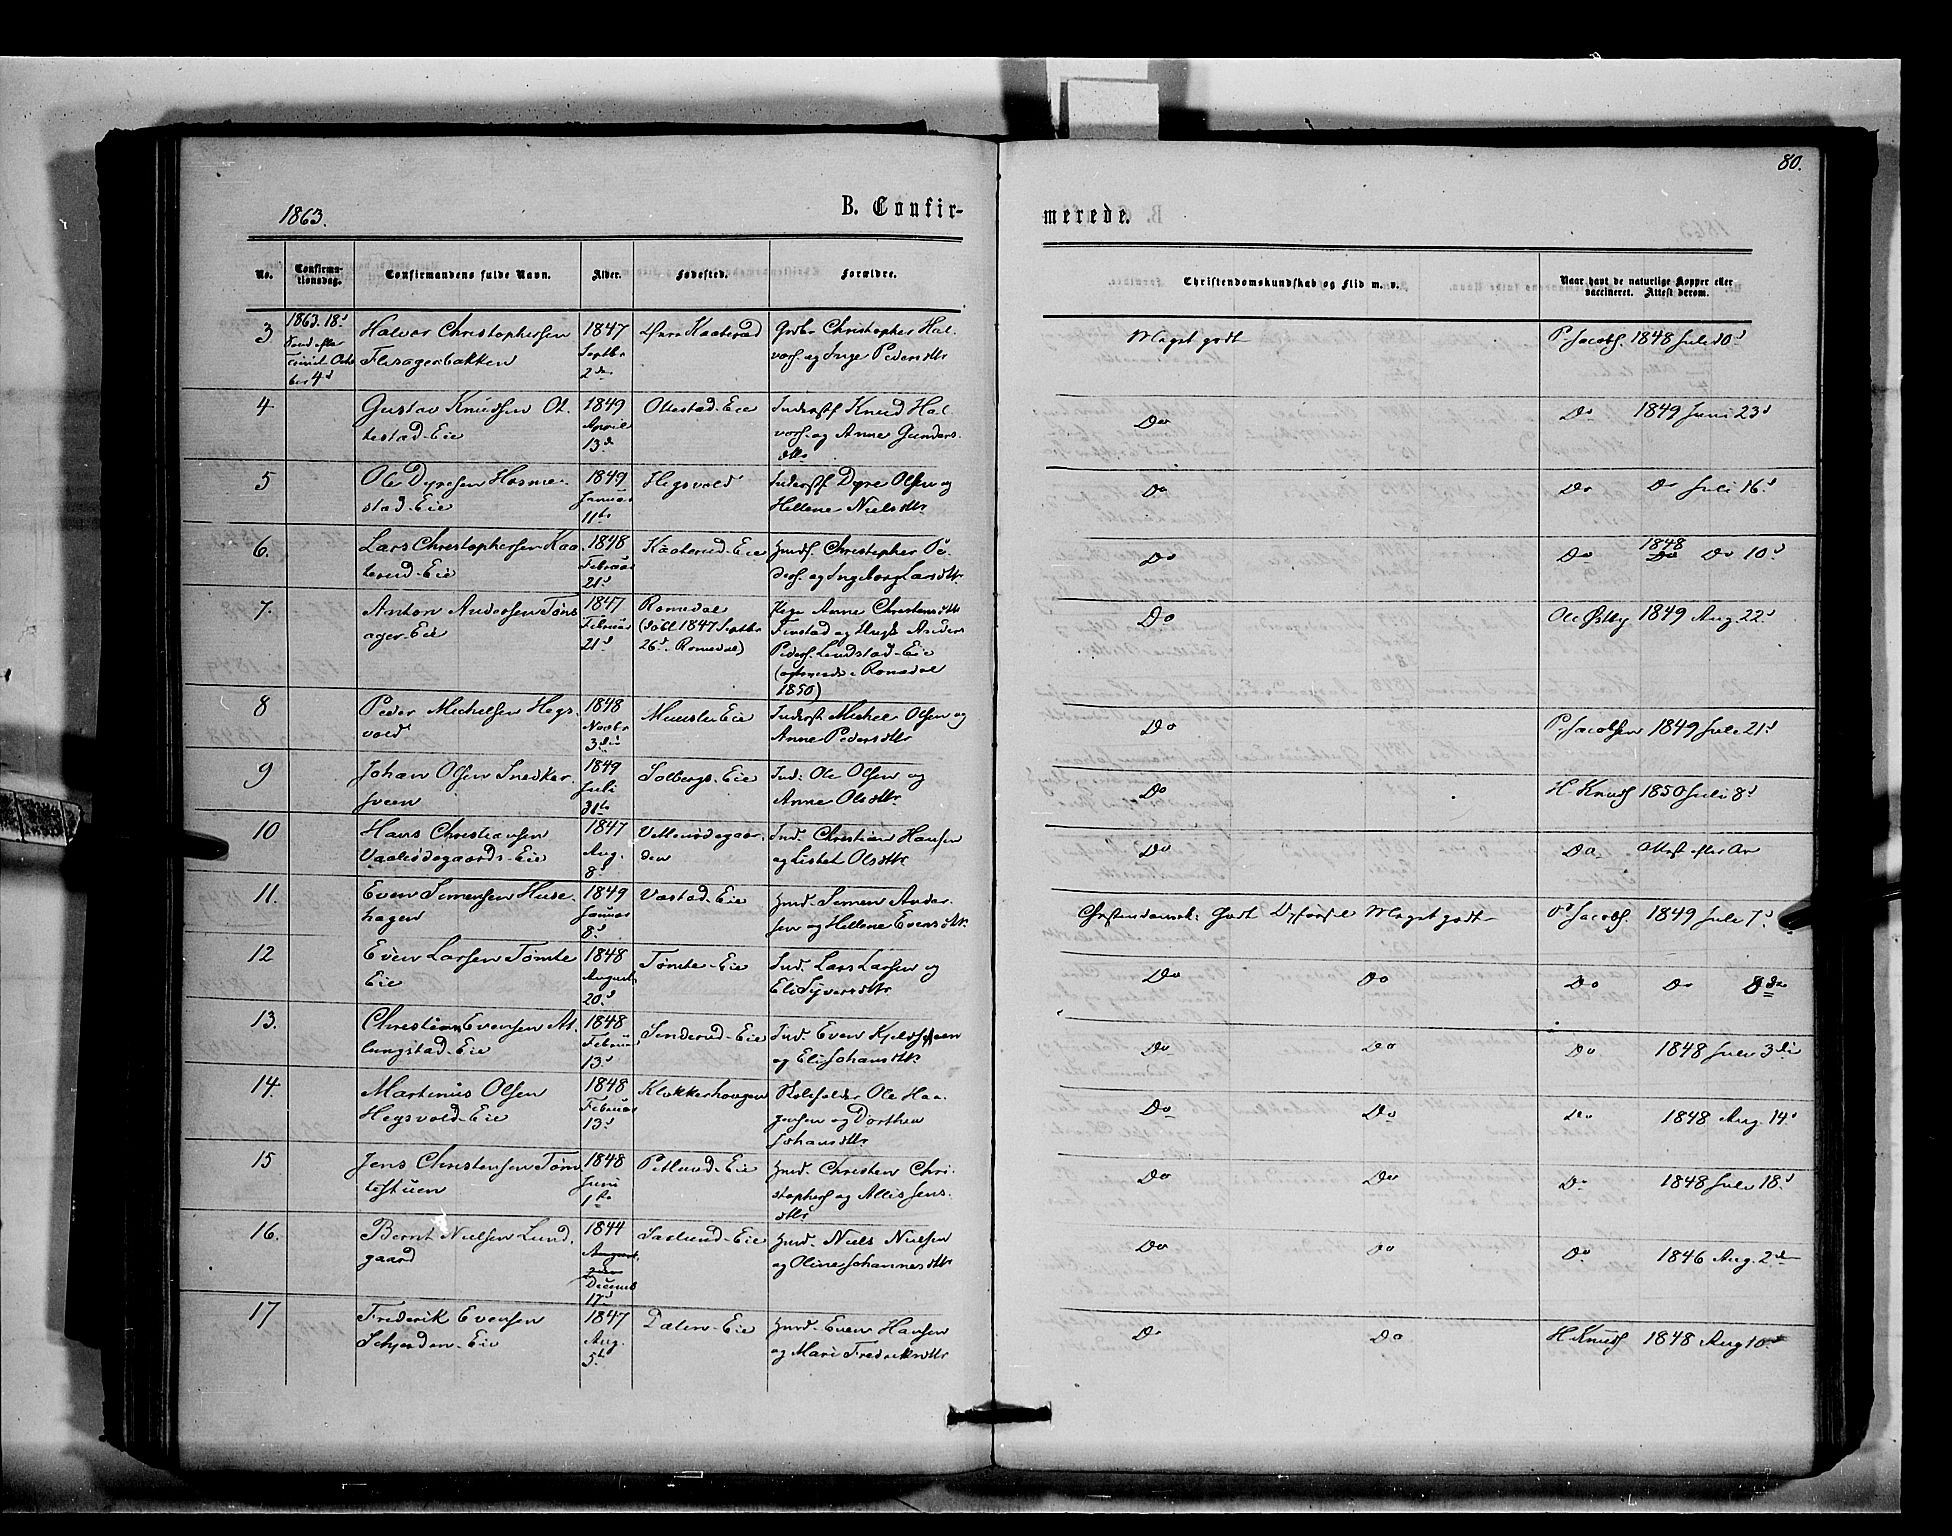 80.
1863.
B. Confir-
merede.
No.
Confirma-
tionsdag.
Confirmandens fulde Navn.
Alder.
Fødested.
Forældre.
Christendomskundskab og Flid m. v.
Naar havt de naturlige Kopper eller
vaccineret. Attest derom.
3
1863. 18d
Octo
ber 4d
Halvor Christophersen
1847
Septbr
2den
Christopher Hal-
vors. og Inger Pedersdtr
Meget godt
P. Jacobs. 1848 Juli 10d
4
Gustav Knudsen Ot-
testad-Eie
1849
April
13de
Ottestad-Eie
Inderst Knud Hal-
vors. og Anne Gunders-
dtr
Do
Do 1849 Juni 23d
5
Ole Dyresen Hosme-
stad-Eie
1849
Januar
11te
Hegsvold
Inderst Dyre Olsen og
Hellene Nielsdtr
Do
Do Do Juli 16d
6.
Lars Christophersen Kaa-
terud-Eie
1848
Februar
21d
Kaaterud-Eie
Husm. Christopher Pe-
ders. og Ingeborg Larsdtr
Do
Do 1848 Do 10d
7.
Anton Andersen Tøms-
ager-Eie
1847
Februar
21d
Romedal
(døbt 1847 Septbr
26d. Romedal)
Pige Anne Christensdtr
Finstad og Ungk. Anders
Peders. Lundstad-Eie
Romedal
1850)
Do
Ole Østby 1849 Aug. 22d
8
Peder Michelsen Hegs-
vold
1848
Novbr
3die
Inderst Michel Olsen og
Anne Pedersdtr
Do
P. Jacobsen 1849 Juli 21d
9
Johan Olsen Snedker-
sveen
1849
Juli
31te
Solbergs-Eie
Ind. Ole Olsen og
Anne Olsdtr
Do
H. Knuds. 1850 Juli 8d
10
Hans Christiansen
1847
Aug.
8d
den
Ind. Christian Hansen
og Lisbet Olsdtr
Do
Do
11.
Even Simensen Huse-
hagen
1849
Januar
8d
Vastad-Eie
Husm. Simen Ander-
sen og Hellene Evensdtr.
Christendomsk: Godt Opførsel Meget godt
P. Jacobs. 1849 Juli 7d
12
Even Larsen Tømte
Eie
1848
August
20d
Tømte-Eie
Ind. Lars Larsen og
Eli Syversdtr
Do Do
Do Do 8de
13.
Christian Evensen At-
lungstad-Eie
1848
Februar
13d
Sinderud-Eie
og Eli Johansdtr.
Do Do
Do 1848 Juli 3die
14.
Martinus Olsen
Hegsvold-Eie
1848
Februar
13d
Klokkerhougen
Ole Haa-
gensen og Dorthea
Johansdtr
Do Do
Do 1848 Aug. 14d
15
Jens Christensen Tøm-
testuen
1848
Juni
1ste
Petlund-Eie
Husm. Christen Chri-
stophers. og Allis Jens-
dtr
Do Do
Do 1848 Juli 18d
16.
Bernt Nielsen Lund-
gaard
1844
August
Decemb
17d
Saxlund-Eie
Husm. Niels Nielsen
og Oline Johannesdtr
Do Do
Do 1846 Aug. 2den
17
Frederik Evensen
1847
Aug.
5te
Dalen-Eie
Husm. Even Hansen
og Mari Frederiksdtr
Do Do
H. Knuds. 1848 Aug 10d